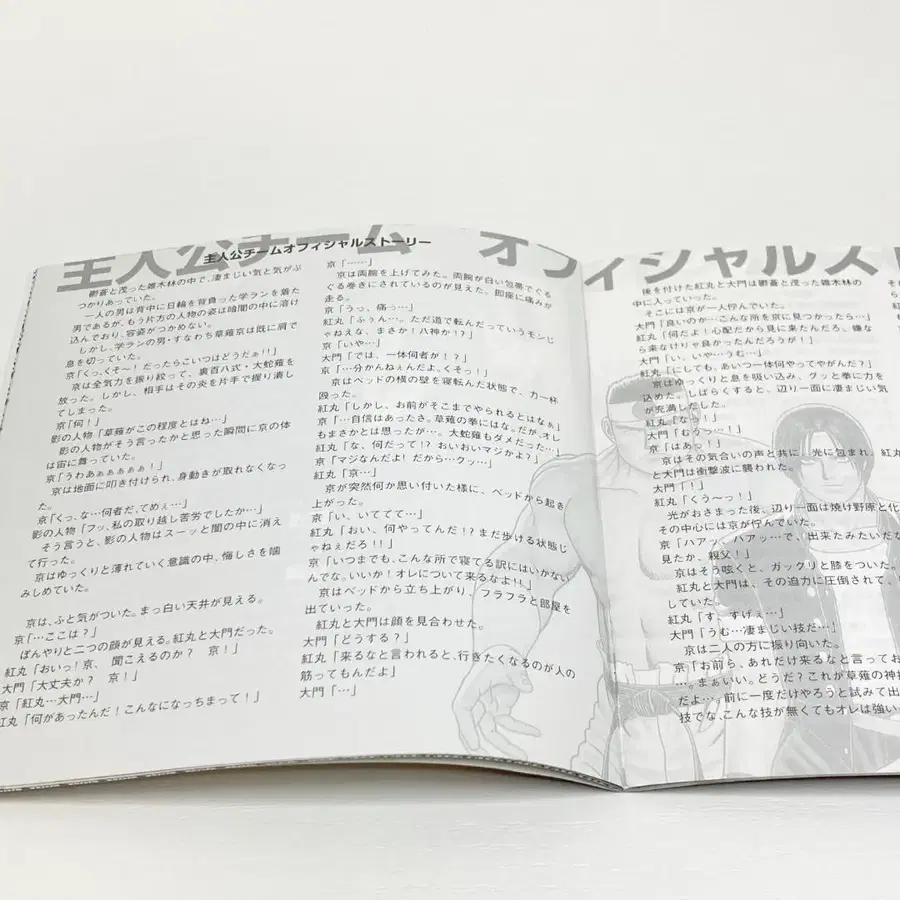 主人公チーム オフィシャルスト
主人公チームオフィシャルストーリー
鬱蒼と茂った雑木林の中で、凄まじい気と気がぶ
つかりあっていた。
一人の男は背中に日輪を背負った学ランを着た
男であるが、もう片方の人物の姿は暗闇の中に溶け
込んでおり、容姿がつかめない。
しかし、学ランの男・すなわち草薙京は既に肩で
息を切っていた。
京「くっ、くそ〜! だったらこいつはどうだぁ!!」
京は全気力を振り絞って、裏百八式・大蛇薙を
放った。しかし、相手はその炎を片手で握り潰し
てしまった。
京「何!」
影の人物「草薙がこの程度とはね…」
影の人物がそう言ったかと思った瞬間に京の体
は宙に舞っていた。
京「うわあぁぁぁぁぁ!」
京は地面に叩き付けられ、身動きが取れなくなっ
た。
京「くっ、な…何者だ、てめぇ…」
影の人物「フッ、私の取り越し苦労でしたか…」
そう言うと、影の人物はスーッと闇の中に消え
て行った。
京はゆっくりと薄れていく意識の中、悔しさを噛
みしめていた。
京は、ふと気がついた。まっ白い天井が見える。
京「…ここは?」
ぼんやりと二つの顔が見える。紅丸と大門だった。
紅丸「おいっ!京、聞こえるのか? 京!」
大門「大丈夫か? 京!」
京「紅丸…大門…」
紅丸「何があったんだ!こんなになっちまって!」
京「……」
京は両腕を上げてみた。両腕が白い包帯でぐる
ぐる巻きにされているのが見えた。即座に痛みが
走る。
京「うっ、痛っ…」
紅丸「ふぅん…。ただ道で転んだっていうモンじ
ゃねえな、まさか!八神か!?」
京「いや…」
大門「では、一体何者が!?」
京「…分かんねぇんだよ、くそっ!」
京はベッドの横の壁を寝転んだ状態で、力一杯
殴った。
紅丸「しかし、お前がそこまでやられるとはなぁ」
京「…自信はあったさ。草薙の拳にはな。だが、オレ
もまさかとは思ったが…。大蛇薙もダメだった…」
紅丸「な、何だって!? おいおいマジかよ?」
京「マジなんだよ!だから…クッ…」
紅丸「京…」
京が突然何か思い付いた様に、ベッドから起き
上がった。
京「い、いててて…」
紅丸「おい、何やってんだ!?まだ歩ける状態じ
ゃねぇだろ!!」
京「いつまでも、こんな所で寝てる訳にはいかない
んでな。いいか!オレについて来るなよ!!」
京はベッドから立ち上がり、フラフラと部屋を
出ていった。
紅丸と大門は顔を見合わせた。
大門「どうする?」
紅丸「来るなと言われると、行きたくなるのが人の
筋ってもんだよ」
大門「…」
後を付けた紅丸と大門は鬱蒼と茂った雑木林の
中に入っていった。
そこには京が一人佇んでいた。
大門「良いのか…こんな所を京に見つかったら…」
紅丸「何だよ!心配だから見に来たんだろ。嫌な
ら来なけりゃ良かったんだろうが!」
大門「い、いや…うむ…」
紅丸「にしても、あいつ一体何やってやがんだ?」
京はゆっくりと息を吸い込み、グッと拳に力を
込めた。しばらくすると、辺り一面に凄まじい気
が充満しだした。
紅丸「なっ!」
大門「むうっ…!」
京「はあっ!」
京はその気合いの声と共に、光に包まれ、紅丸
と大門は衝撃波に襲われた。
大門「!」
紅丸「くう〜っ!」
光がおさまった後、辺り一面は焼け野原と化
その中心には京が佇んでいた。
京「ハアッ、ハアッ…で、出来たみたいだな
見たか、親父!」
京はそう呟くと、ガックリと膝をついた。
紅丸と大門は、その迫力に圧倒されて、
していた。
紅丸「す、すげぇ…」
大門「うむ…凄まじい技だ…」
京は二人の方に振り向いた。
京「お前ら、あれだけ来るなと言ってお
…。まぁいい。どうだ?これが草薙の神技
だよ…。前に一度だけやろうと試みて出
技でな、こんな技が無くてもオレは強い